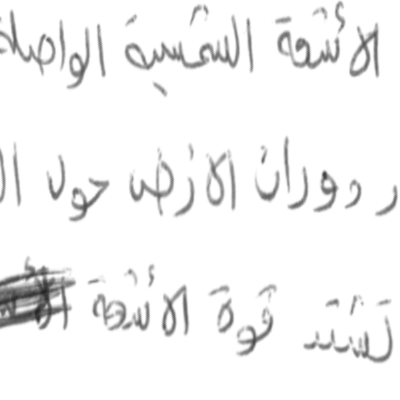 الأشعة الشمسية الواصلة
ر دوران الارض حول ال
تشتد قوة الاشعة